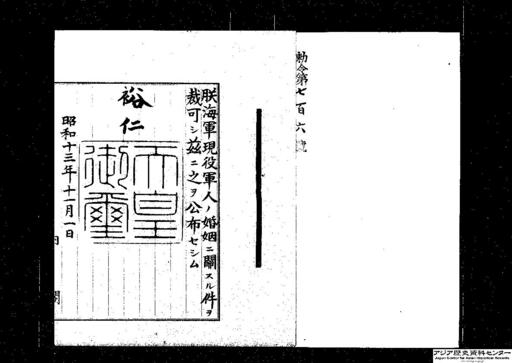 勅令第七百六號
朕海軍現役軍人ノ婚姻ニ關スル件ヲ
裁可シ茲ニ之ヲ公布セシム
裕仁
天皇
御璽
昭和十三年十一月一日
内
閣
アジア歴史資料センター
Japan Center for Asian Historical Records